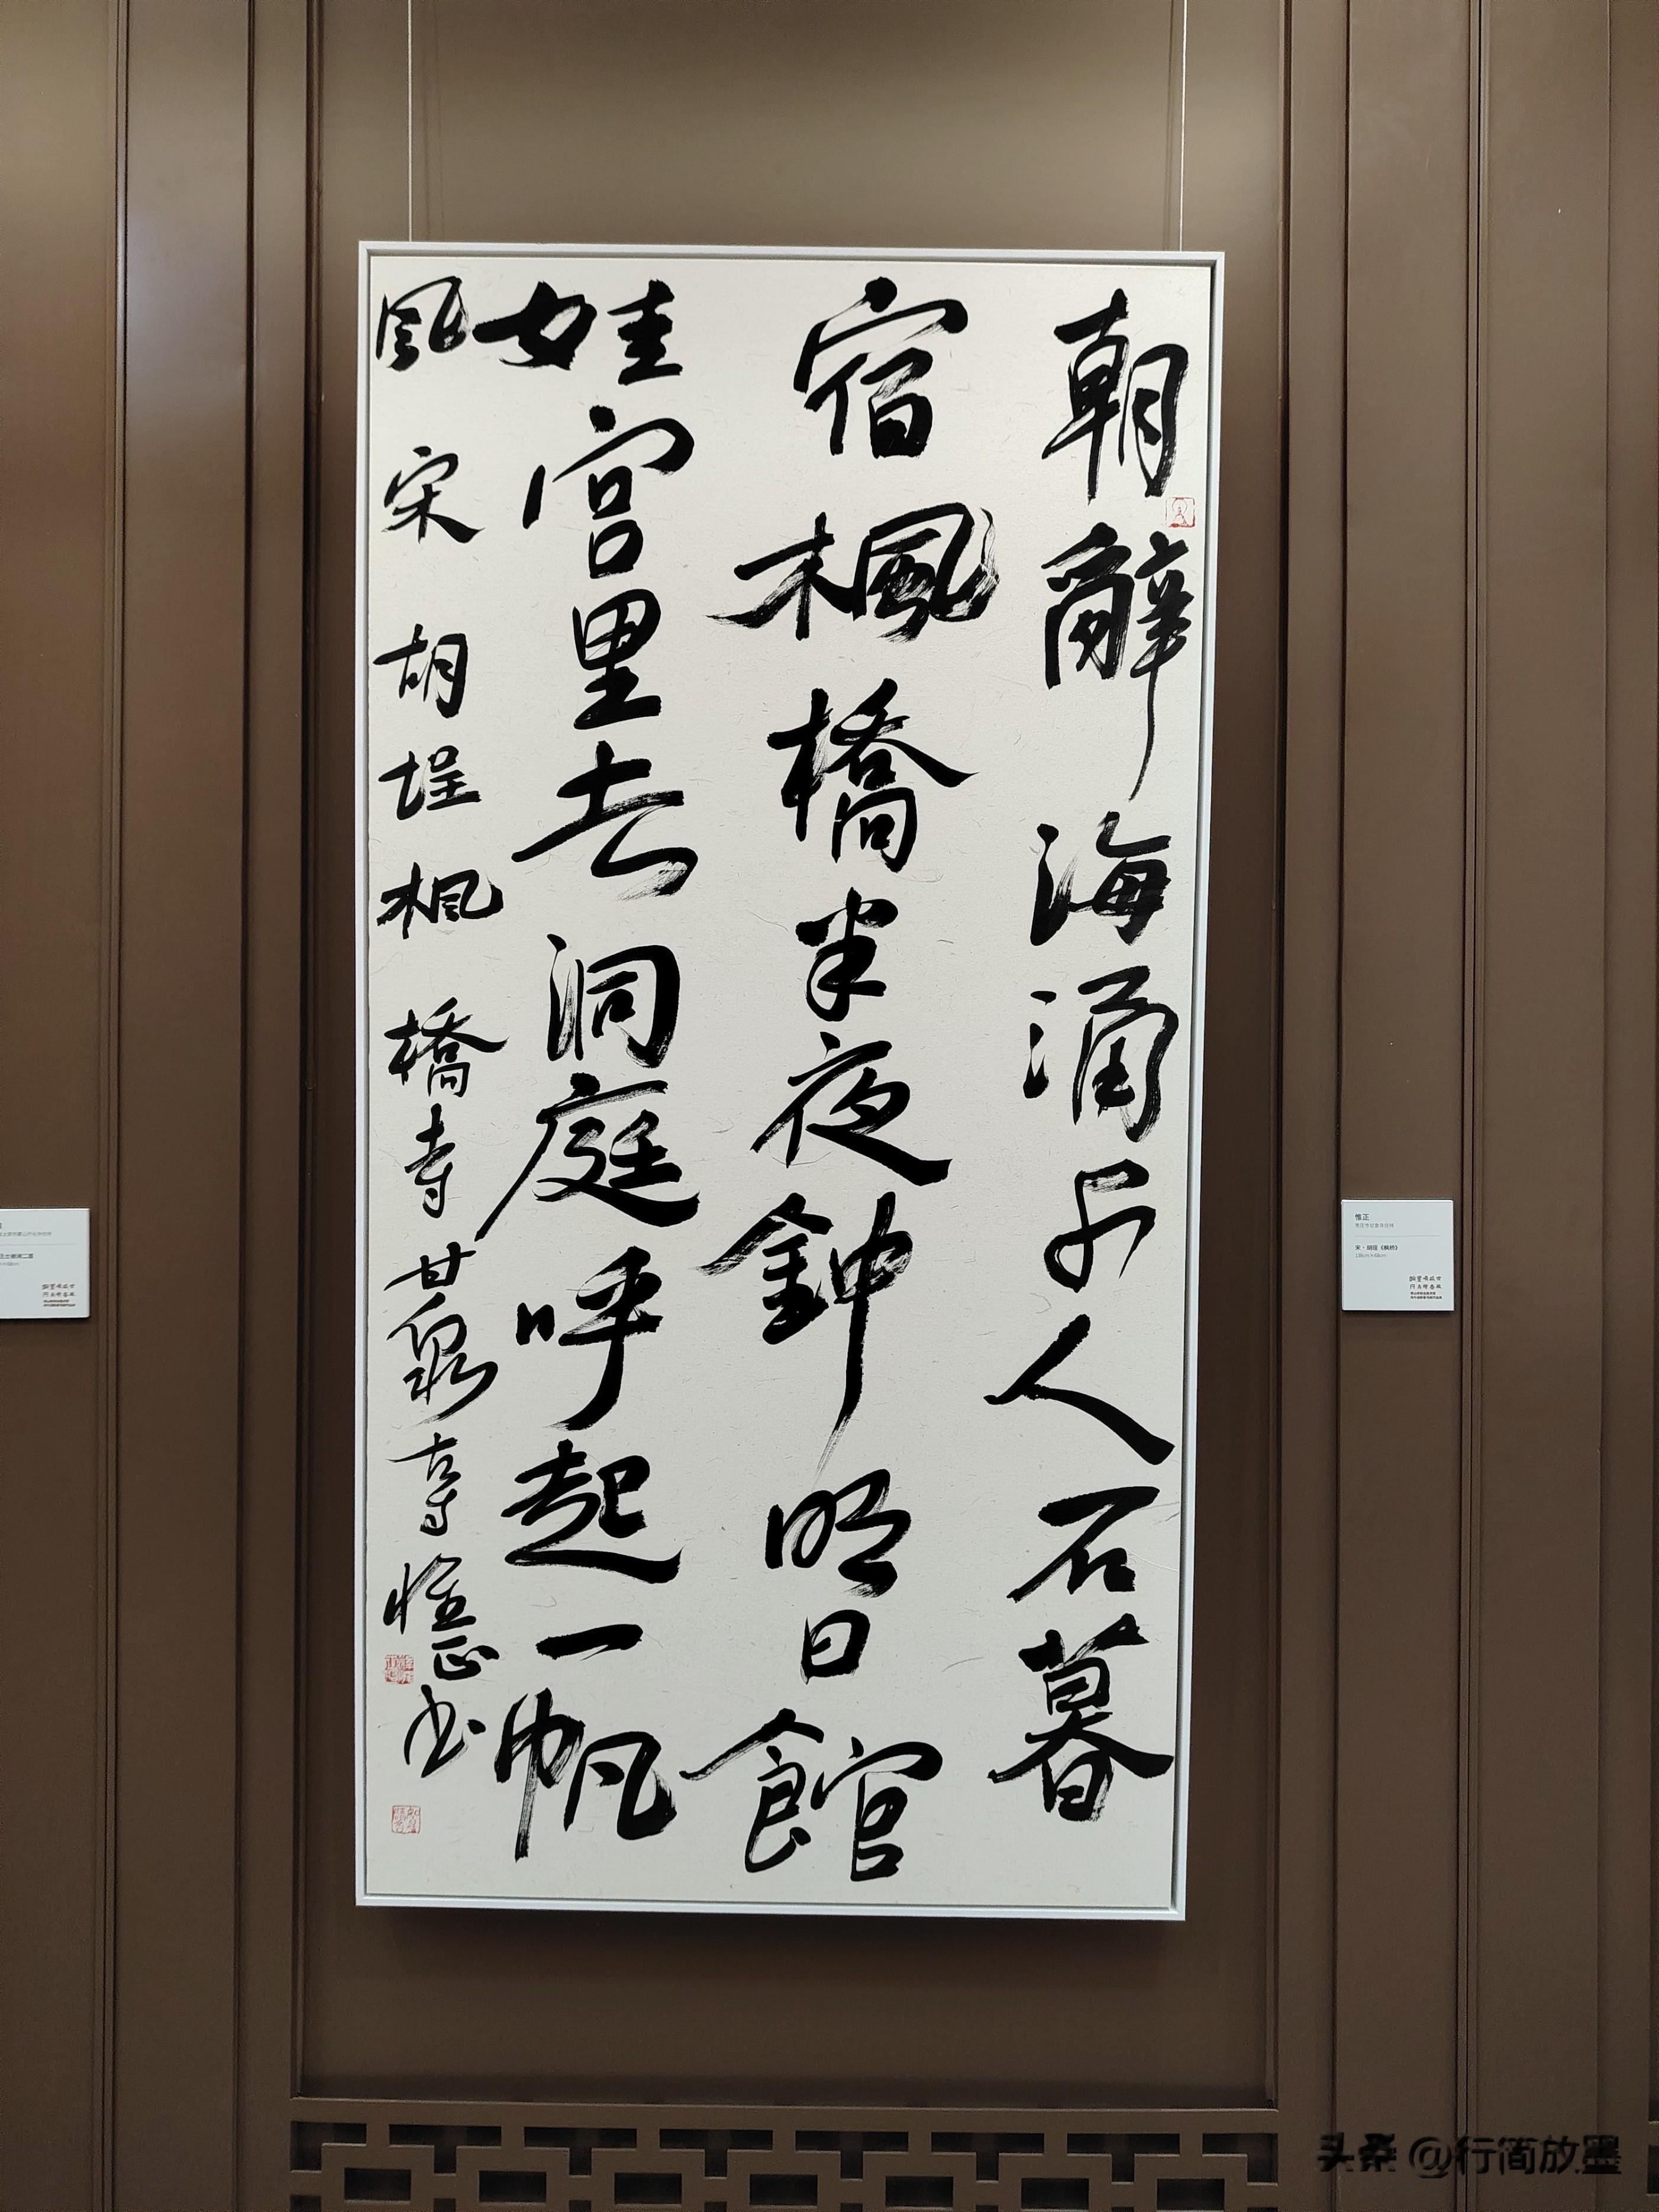 朝辭海涌千人石暮
宿楓橋半夜鐘明日館
娃宮里去洞庭呼起一帆
風 宋 胡埕楓橋寺 甘泉古寺惟正书
惟正
宋·胡埕《枫桥》
头条 @行简放墨